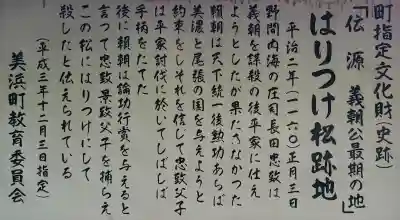 町指定文化財(史跡)
「伝 源 義朝公最期の地」
はりつけ松跡地
平治二年(一一六〇)正月三日
野間内海の庄司長田忠致は
義朝を謀殺の後平家に仕え
ようとしたが果たさなかった
頼朝は天下統一後勲功あらば
美濃と尾張の国を与えようと
約束をしそれを信じて忠致父子
は平家討伐に於いてしばしば
手柄をたてた
後に頼朝は論功行賞を与えると
言って忠致景致父子を捕らえ
この松にはりつけにして
殺したと伝えられている
(平成三年十二月三日指定)
美浜町教育委員会